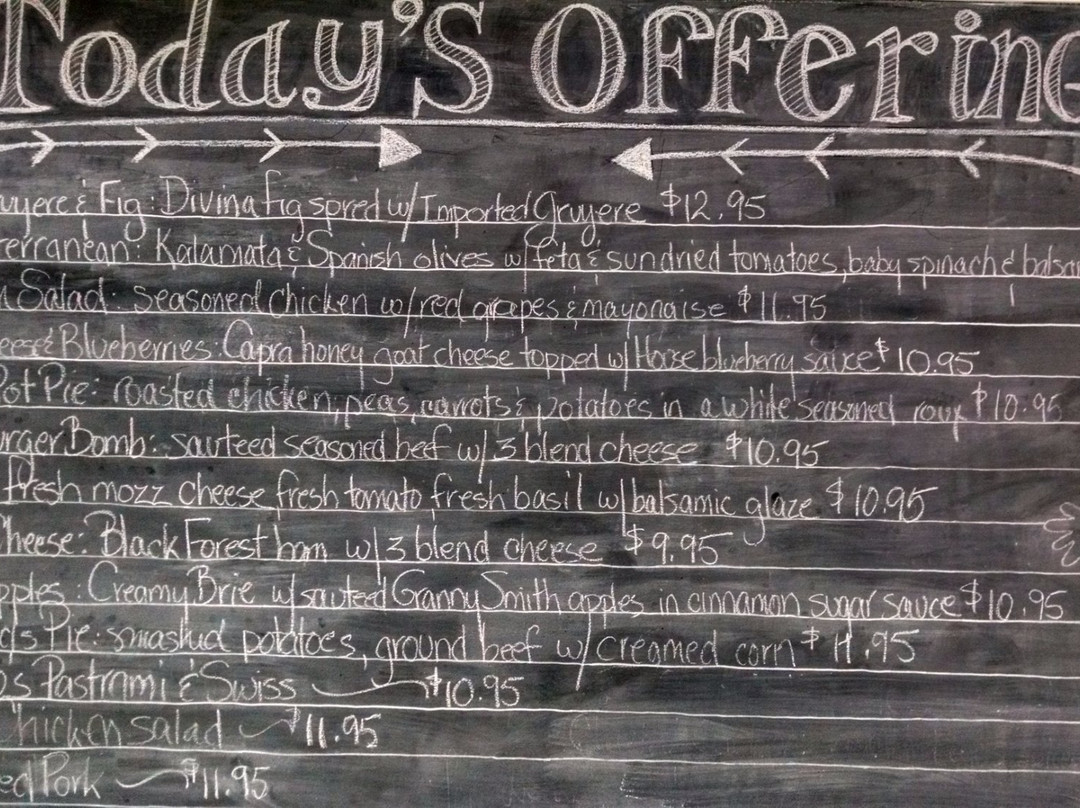 Today's Offering
uyere & Fig: Divina fig spred w/ Imported Gruyere $12.95
terranean: Kalamata & Spanish olives w/ feta & sundried tomatoes, baby spinach & balsam
n Salad: seasoned chicken w/ red grapes & mayonaise $11.95
eese & Blueberries: Capra honey goat cheese topped w/ House blueberry sauce $10.95
Pot Pie: roasted chicken, peas, carrots & potatoes in a white seasoned roux $10.95
urger Bomb: sauteed seasoned beef w/ 3 blend cheese $10.95
fresh mozz cheese, fresh tomato, fresh basil w/ balsamic glaze $10.95
Cheese: Black Forest ham w/ 3 blend cheese $9.95
pples: Creamy Brie w/ sauteed Granny Smith apples in cinnamon sugar sauce $10.95
ds Pie: smashed potatoes, ground beef w/ creamed corn $11.95
os Pastrami & Swiss $10.95
Chicken salad $11.95
ed Pork $11.95